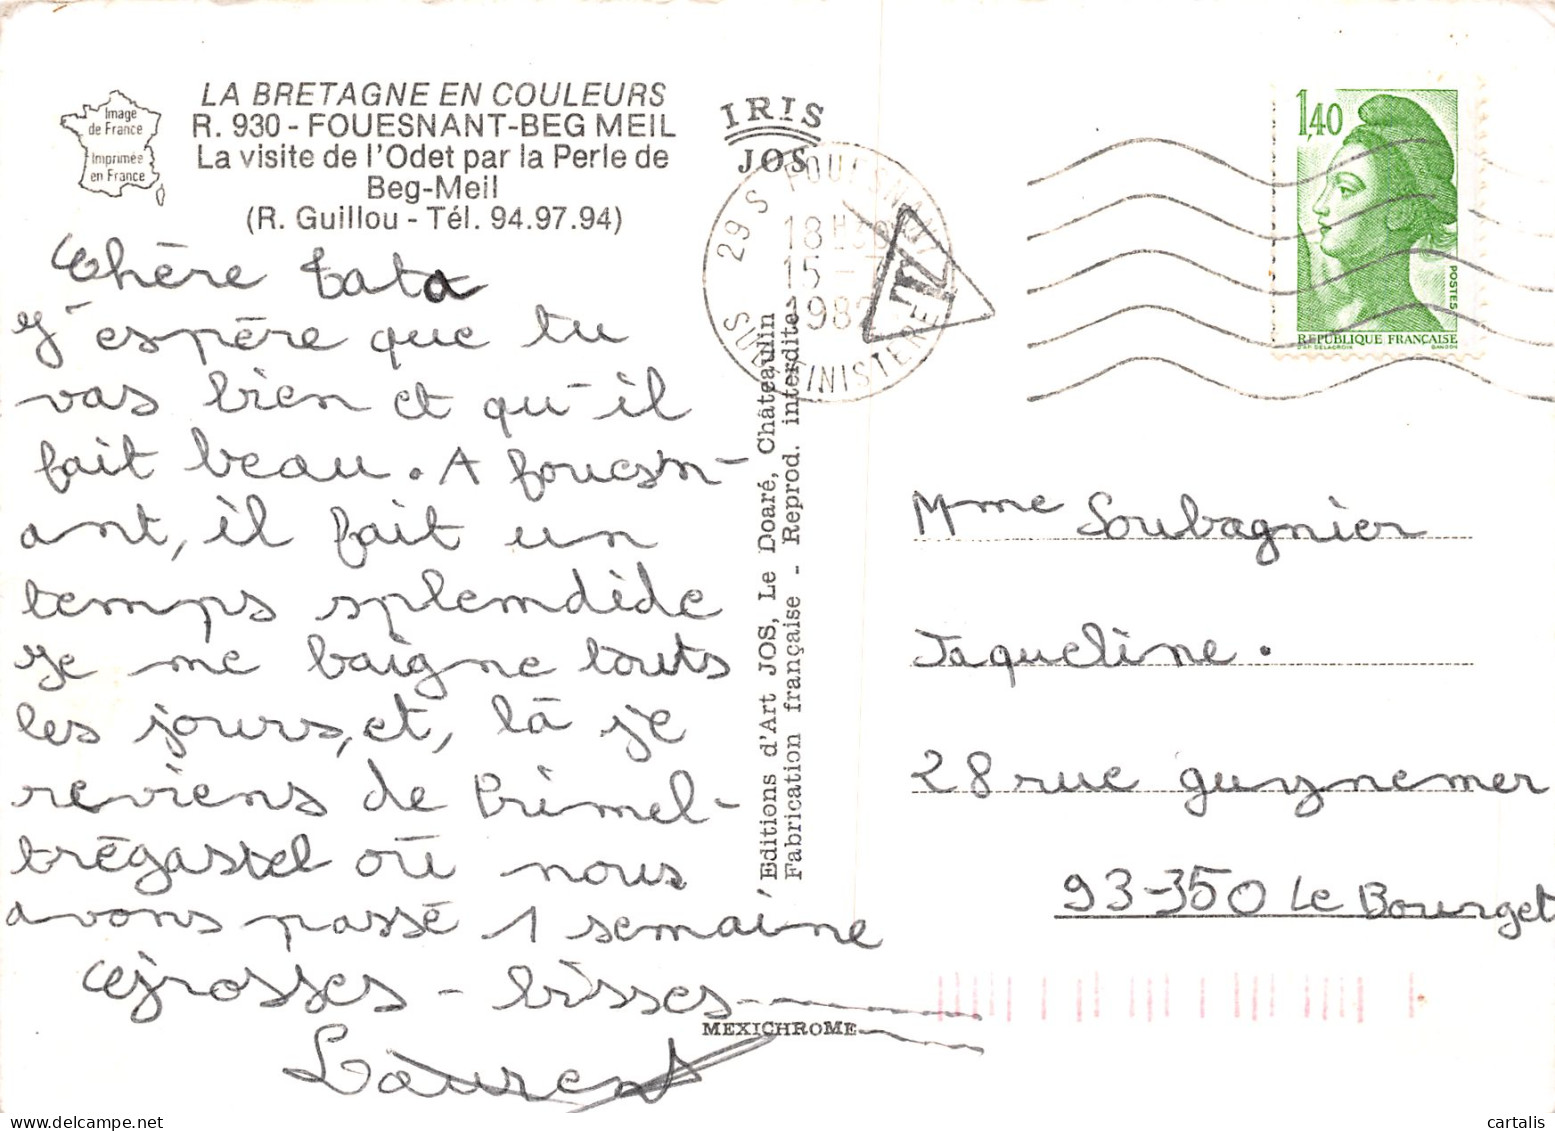 Image
de France
Imprimée
en France
LA BRETAGNE EN COULEURS
R. 930 - FOUESNANT-BEG MEIL
La visite de l'Odet par la Perle de
Beg-Meil
(R. Guillou - Tél. 94.97.94)
Chère tata
J'espère que tu
vas bien et qu'il
fait beau. A fouesn-
ant, il fait un
temps splendide
Je me baigne touts
les jours, et, là je
reviens de Primel-
trégastel où nous
avons passé 1 semaine
Grosses - bisses
Laurent
IRIS
JOS
29 S FOUESNANT
18H30
15 -
198
SUD FINISTERE
T
Editions d'Art JOS, Le Doaré, Châteaulin
Fabrication française - Reprod. interdite
MEXICHROME
1,40
POSTES
REPUBLIQUE FRANÇAISE
D'AP. DELACROIX GANDON
Mme Soubagnier
Jaqueline.
28 rue guynemer
93-350 Le Bourget
cartalis